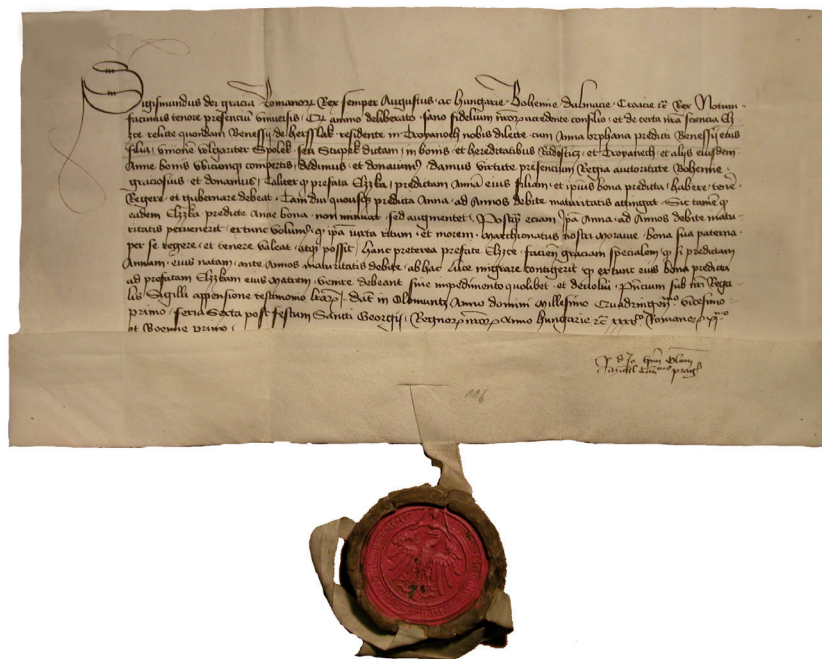 Sigismundus dei gracia Romanorum Rex semper Augustus ac Hungarie Bohemie Dalmacie Croacie etc Rex Notum
facimus tenore presencium universis Cum animo deliberato sano fidelium nostrorum accedente consilio et de certa nostra sciencia Elz
ce relicte quondam Benessii de residente in Troyanoch nobis dilecte cum Anna orphana predicti Benessii eius
filia unionem volgariter Spolek seu Stupek dictam in bonis et hereditatibus et Troyanech et alijs eiusdem
Anne bonis ubicunque compertis dedimus et donavimus damus virtute presencium Regia autoritate Bohemie
graciosius et donamus Taliter quod prefata Elzka predictam Annam eius filiam et ipsius bona predicta habere tenere
Regere et gubernare debeat Tam diu quousque predicta Anna ad Annos debite maturitatis attingat Sic tamen quod
eadem Elzka predicte Anne bona non minuat sed augmentet Postquam eciam ipsa Anna ad Annos debite matu
ritatis pervenerit extunc volumus quod ipsa iuxta ritum et morem Marchionatus nostri Moravie bona sua paterna
per se regere et tenere valeat atque possit hanc preterea prefate Elzce facientes graciam specialem quod si predictam
Annam eius natam ante Annos maturitatis debite ab hac luce migrare contigerit quod extunc eius bona predicta
ad prefatam Elzkam eius Matrem venire debeant sine impedimento quolibet et devolui Presencium sub nostri Rega
lis Sigilli appensione testimonio litterarum Datum in Olomuntz Anno domini Millesimo Quadringentesimo vicesimo
primo feria Sexta post festum Sancti Georgii Regnorum nostrorum Anno Hungarie etc xxxv Romanorum xi
et Boemie primo
116